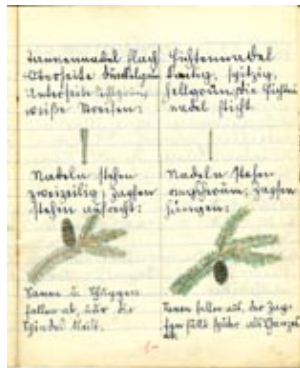 Tannennadel flach
Oberseite dunkelgrün
Unterseite hellgrün,
weiße Streifen:
Nadeln stehen
zweizeilig; Zapfen
stehen aufrecht:
Samen u. Schuppen
fallen ab, nur die
Spindel bleibt.
Fichtennadel
kantig, spitzig,
hellgrün, die Fichten
nadel sticht
Nadeln stehen
ringsherum; Zapfen
hängen:
Samen fallen aus, der Zap-
fen fällt später als Ganzes
ab.